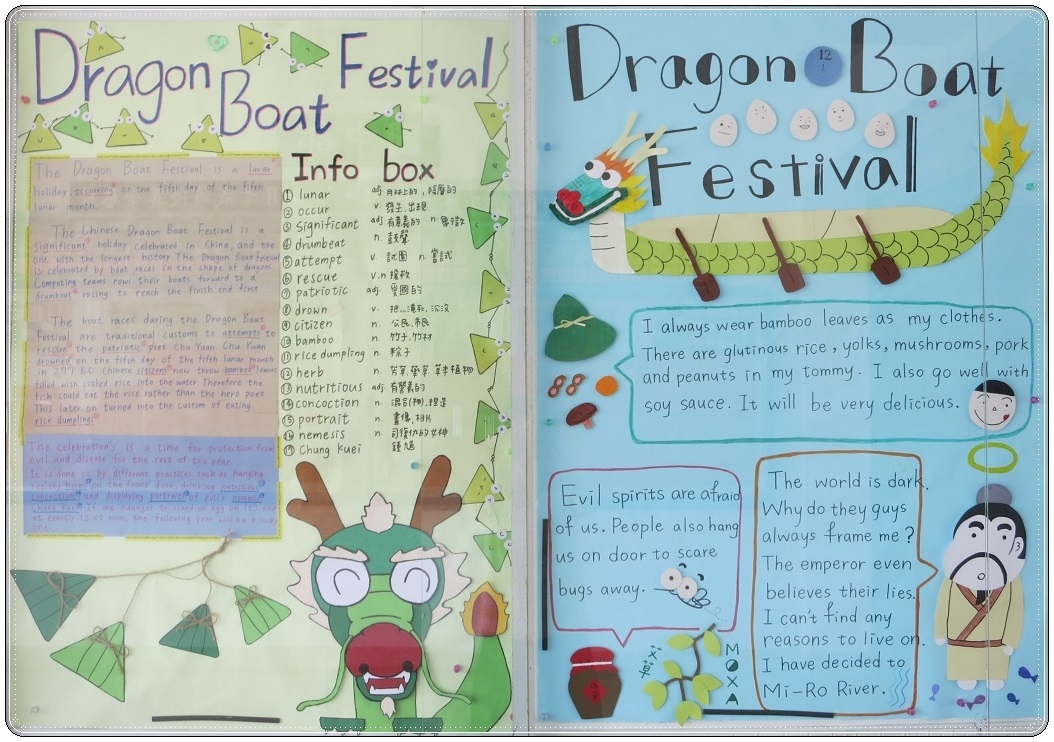 Dragon Boat Festival
The Dragon Boat Festival is a lunar
holiday, occurring on the fifth day of the fifth
lunar month.
The Chinese Dragon Boat Festival is a
significant holiday celebrated in China, and the
one with the longest history. The Dragon Boat Festival
is celebrated by boat races in the shape of dragons.
Competing teams row their boats forward to a
drumbeat racing to reach the finish end first.
The boat races during the Dragon Boat
Festival are traditional customs to attempts to
rescue the patriotic poet Chu Yuan. Chu Yuan
drowned on the fifth day of the fifth lunar month
in 277 B.C. Chinese citizens now throw bamboo leaves
filled with cooked rice into the water. Therefore the
fish could eat the rice rather than the hero poet.
This later on turned into the custom of eating
rice dumplings.
The celebration's is a time for protection from
evil and disease for the rest of the year.
It is done so by different practices such as hanging
herbs on the front door, drinking nutritious
concoctions and displaying portraits of evil's nemesis
Chung Kuei. If one manages to stand an egg on it's end
at exactly 12:00 noon, the following year will be a lucky
one.
Info box
① lunar adj. 月球上的, 陰曆的
② occur v. 發生, 出現
③ significant adj. 有意義的 n. 象徵
④ drumbeat n. 鼓聲
⑤ attempt v. 試圖 n. 嘗試
⑥ rescue v.n 援救
⑦ patriotic adj. 愛國的
⑧ drown v. 把...淹死, 沉沒
⑨ citizen n. 公民, 市民
⑩ bamboo n. 竹子, 竹材
⑪ rice dumpling n. 粽子
⑫ herb n. 芳草, 藥草 草本植物
⑬ nutritious adj. 有營養的
⑭ concoction n. 混合(物), 捏造
⑮ portrait n. 畫像, 相片
⑯ nemesis n. 司復仇的女神
⑰ Chung Kuei 鍾馗
Dragon Boat
12
Festival
I always wear bamboo leaves as my clothes.
There are glutinous rice, yolks, mushrooms, pork
and peanuts in my tommy. I also go well with
soy sauce. It will be very delicious.
Evil spirits are afraid
of us. People also hang
us on door to scare
bugs away.
MOXA
The world is dark.
Why do they guys
always frame me?
The emperor even
believes their lies.
I can't find any
reasons to live on.
I have decided to
Mi-Ro River.